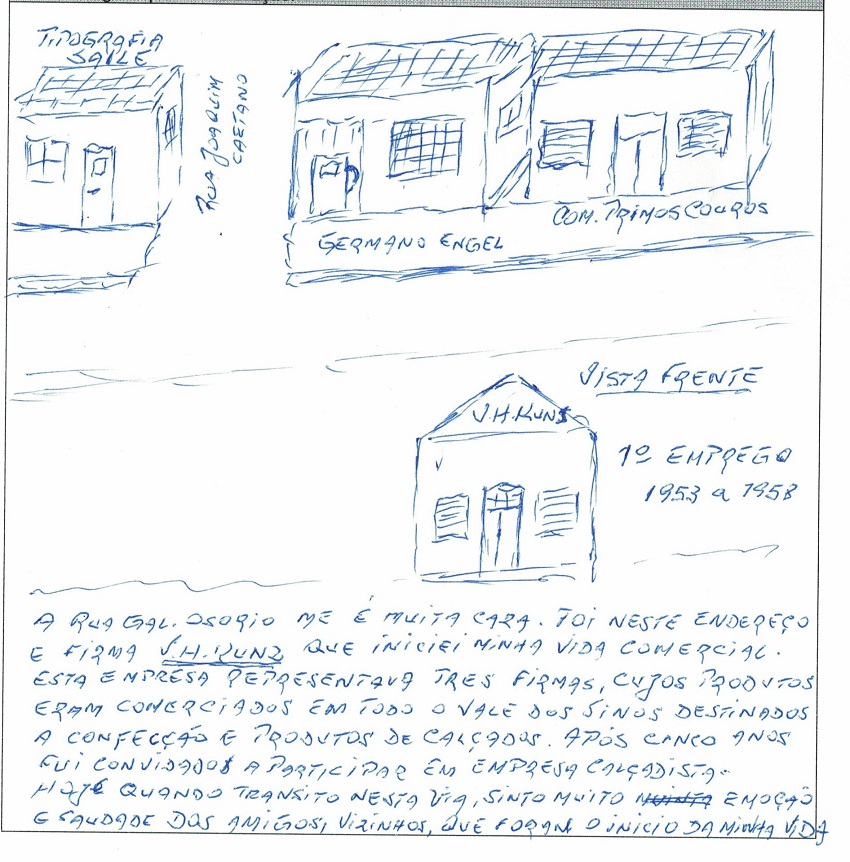 TIPOGRAFIA
SAILE
RUA JOAQUIM
CAETANO
GERMANO ENGEL
COM. PRIMOS COUROS
VISTA FRENTE
J.H.KUNZ
1º EMPREGO
1953 a 1958
A RUA GAL. OSORIO ME É MUITA CARA. FOI NESTE ENDEREÇO
E FIRMA J.H.KUNZ QUE INICIEI MINHA VIDA COMERCIAL.
ESTA EMPRESA REPRESENTAVA TRES FIRMAS, CUJOS PRODUTOS
ERAM COMERCIADOS EM TODO O VALE DOS SINOS DESTINADOS
A CONFECÇÃO E PRODUTOS DE CALÇADOS. APÓS CINCO ANOS
FUI CONVIDADO A PARTICIPAR EM EMPRESA CALÇADISTA.
HOJE QUANDO TRANSITO NESTA VIA, SINTO MUITO EMOÇÃO
E SAUDADE DOS AMIGOS, VIZINHOS, QUE FORAM O INICIO DA MINHA VIDA